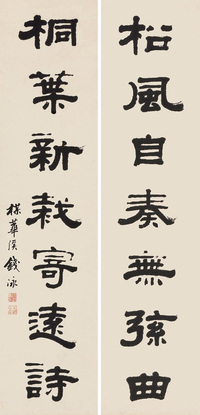 松風自奏無弦曲
桐葉新栽寄遠詩
梅華溪錢泳